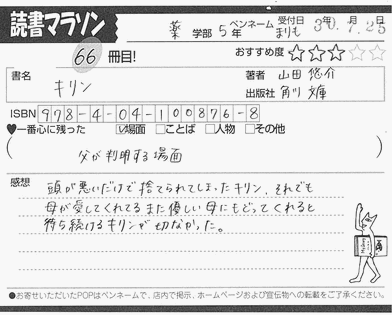 読書マラソン 薬 学部 5 年 ペンネーム まりも 受付日 30年 7月 25日
66 冊目! おすすめ度 ★★★☆☆
書名 キリン
著者 山田 悠介
出版社 角川文庫
ISBN 978-4-04-100876-8
♥一番心に残った ☑場面 □ことば □人物 □その他
( 父が判明する場面 )
感想 頭が悪いだけで捨てられてしまったキリン、それでも
母が愛してくれてるまた優しい母にもどってくれると
待ち続けるキリンが切なかった。
●お寄せいただいたPOPはペンネームで、店内で掲示、ホームページおよび宣伝物への転載をご了承ください。